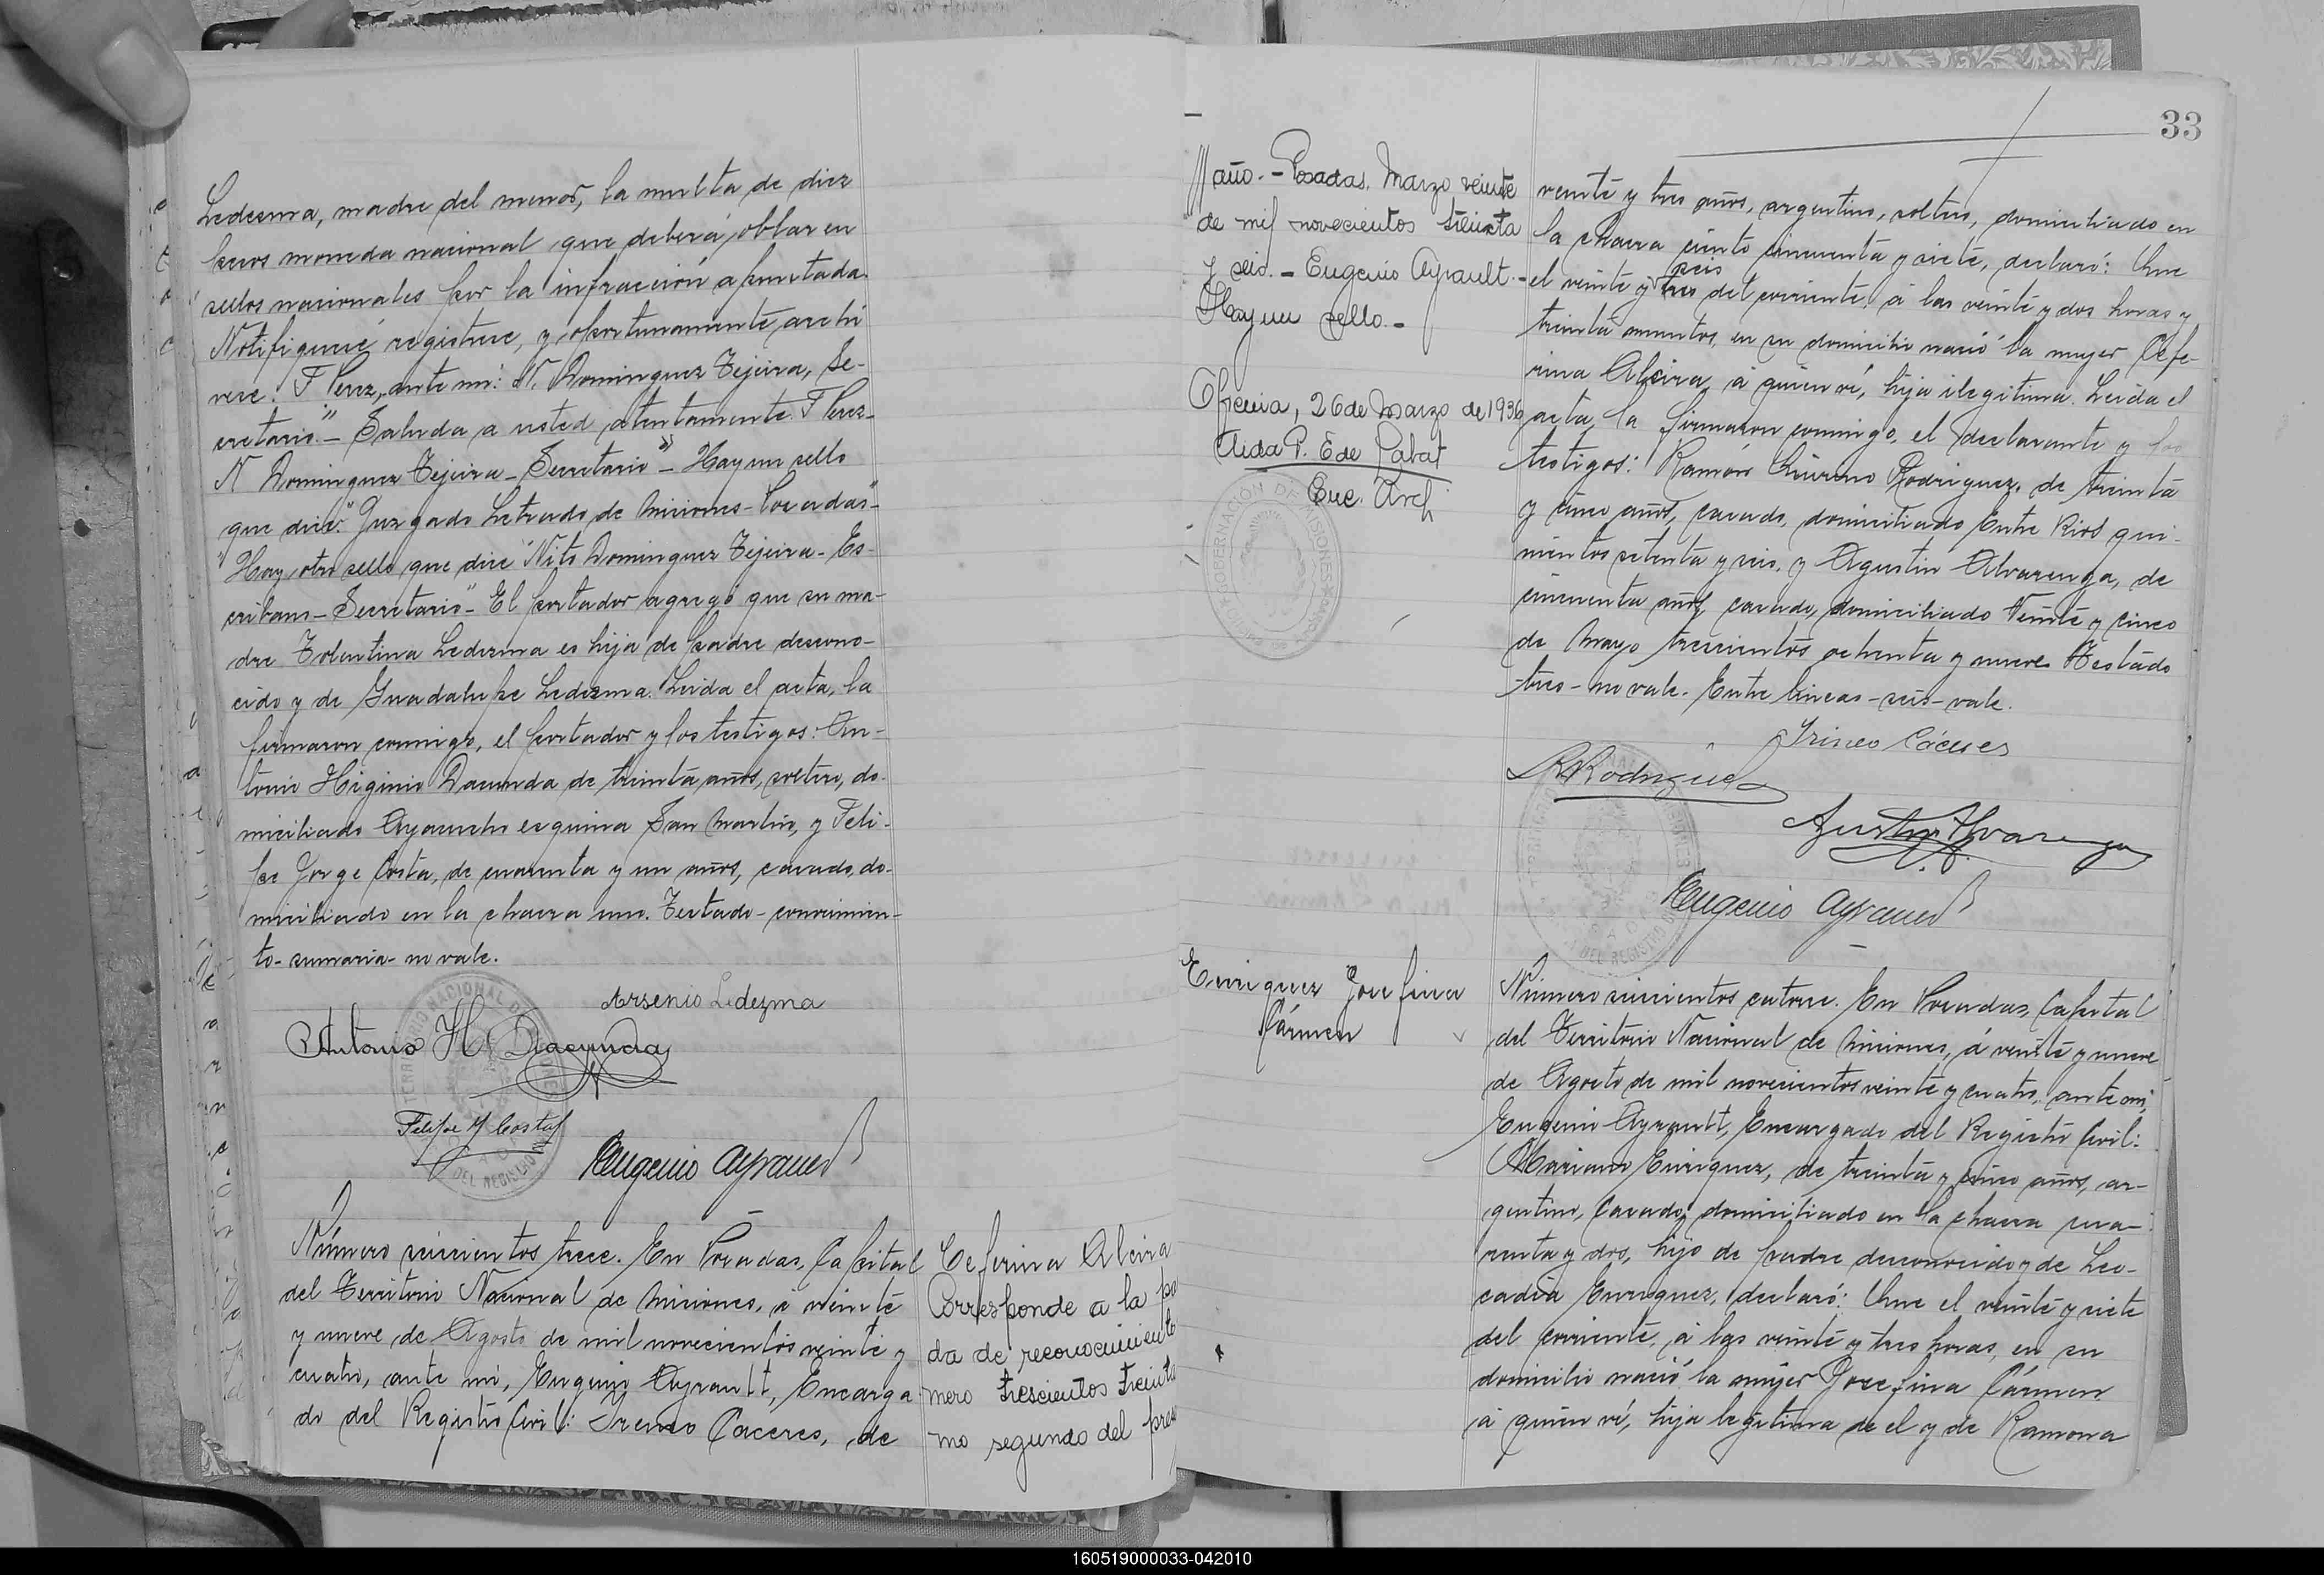 Ledesma, madre del menor, la multa de diez
pesos moneda nacional que deberá oblar en
sellos nacionales por la infracción apuntada.
Notifiquese registrese, y oportunamente, archi
vese. F Perez, ante mi: N. Dominguez Tejeira, Se-
cretario."- Saluda a usted atentamente. F Perez-
N Dominguez Tejeira- Secretario"- Hay un sello
que dice: "Juzgado Letrado de Misiones- Posadas"-
"Hay otro sello que dice "Nito Dominguez Tejeira- Es-
cribano- Secretario"- El portador agregó que su ma-
dre Tolentina Ledezma es hija de padre descono-
cido y de Guadalupe Ledezma. Leida el acta, la
firmaron conmigo, el portador y los testigos: An-
tonio Higinio Dacunda de treinta años, soltero, do-
miciliado Ayacucho esquina San Martin, y Feli-
pe Jorge Costa, de cuarenta y un años, casado, do-
miciliado en la chacra uno. Testado- conocimien-
to- sumaria- no vale.
Arsenio Ledezma
Antonio H. Dacunda
Felipe J Costa
Eugenio Ayrault
Número seiscientos trece. En Posadas, Capital
del Territorio Nacional de Misiones, a veinte
y nueve de Agosto de mil novecientos veinte y
cuatro, ante mi, Eugenio Ayrault, Encarga
do del Registro Civil: Ireneo Caceres, de
Ceferina Alcira
Corresponde a la
da de reconocimiento
mero trescientos treinta
mo segundo del
33
año.- Posadas, Marzo veinte
de mil novecientos treinta
y seis.- Eugenio Ayrault.-
Hay un sello.-
Oficina, 26 de Marzo de 1936
Aida P. E de Labat
Enc. Arch
GOBERNACIÓN DE MISIONES
veinte y tres años, argentino, soltero, domiciliado en
la chacra ciento cincuenta y siete, declaró: Que
seis
el veinte y tres del corriente, á las veinte y dos horas y
treinta minutos, en su domicilio nació la mujer Cefe-
rina Alcira, á quien vi, hija ilegitima. Leida el
acta, la firmaron conmigo, el declarante y los
testigos: Ramón Rodriguez, de treinta
y cinco años, casado, domiciliado Entre Rios qui-
nientos setenta y seis, y Agustin Alvarenga, de
cincuenta años, casado, domiciliado Veinte y cinco
de Mayo trescientos ochenta y nueve. Testado
-tres- no vale. Entre lineas- seis- vale.
Irineo Cáceres
R Rodriguez
Agustin Alvarenga
Eugenio Ayrault
Enriquez Josefina
Cármen
Número seiscientos catorce. En Posadas, Capital
del Territorio Nacional de Misiones, á veinte y nueve
de Agosto de mil novecientos veinte y cuatro, ante mi,
Eugenio Ayrault, Encargado del Registro Civil:
Mariano Enriquez, de treinta y cinco años, ar-
gentino, casado, domiciliado en la chacra cua-
renta y dos, hijo de padre desconocido y de Leo-
cadia Enriquez, declaró: Que el veinte y siete
del corriente, á las veinte y tres horas, en su
domicilio nació la mujer Josefina Cármen,
á quien vi, hija legitima de el y de Ramona
160519000033-042010